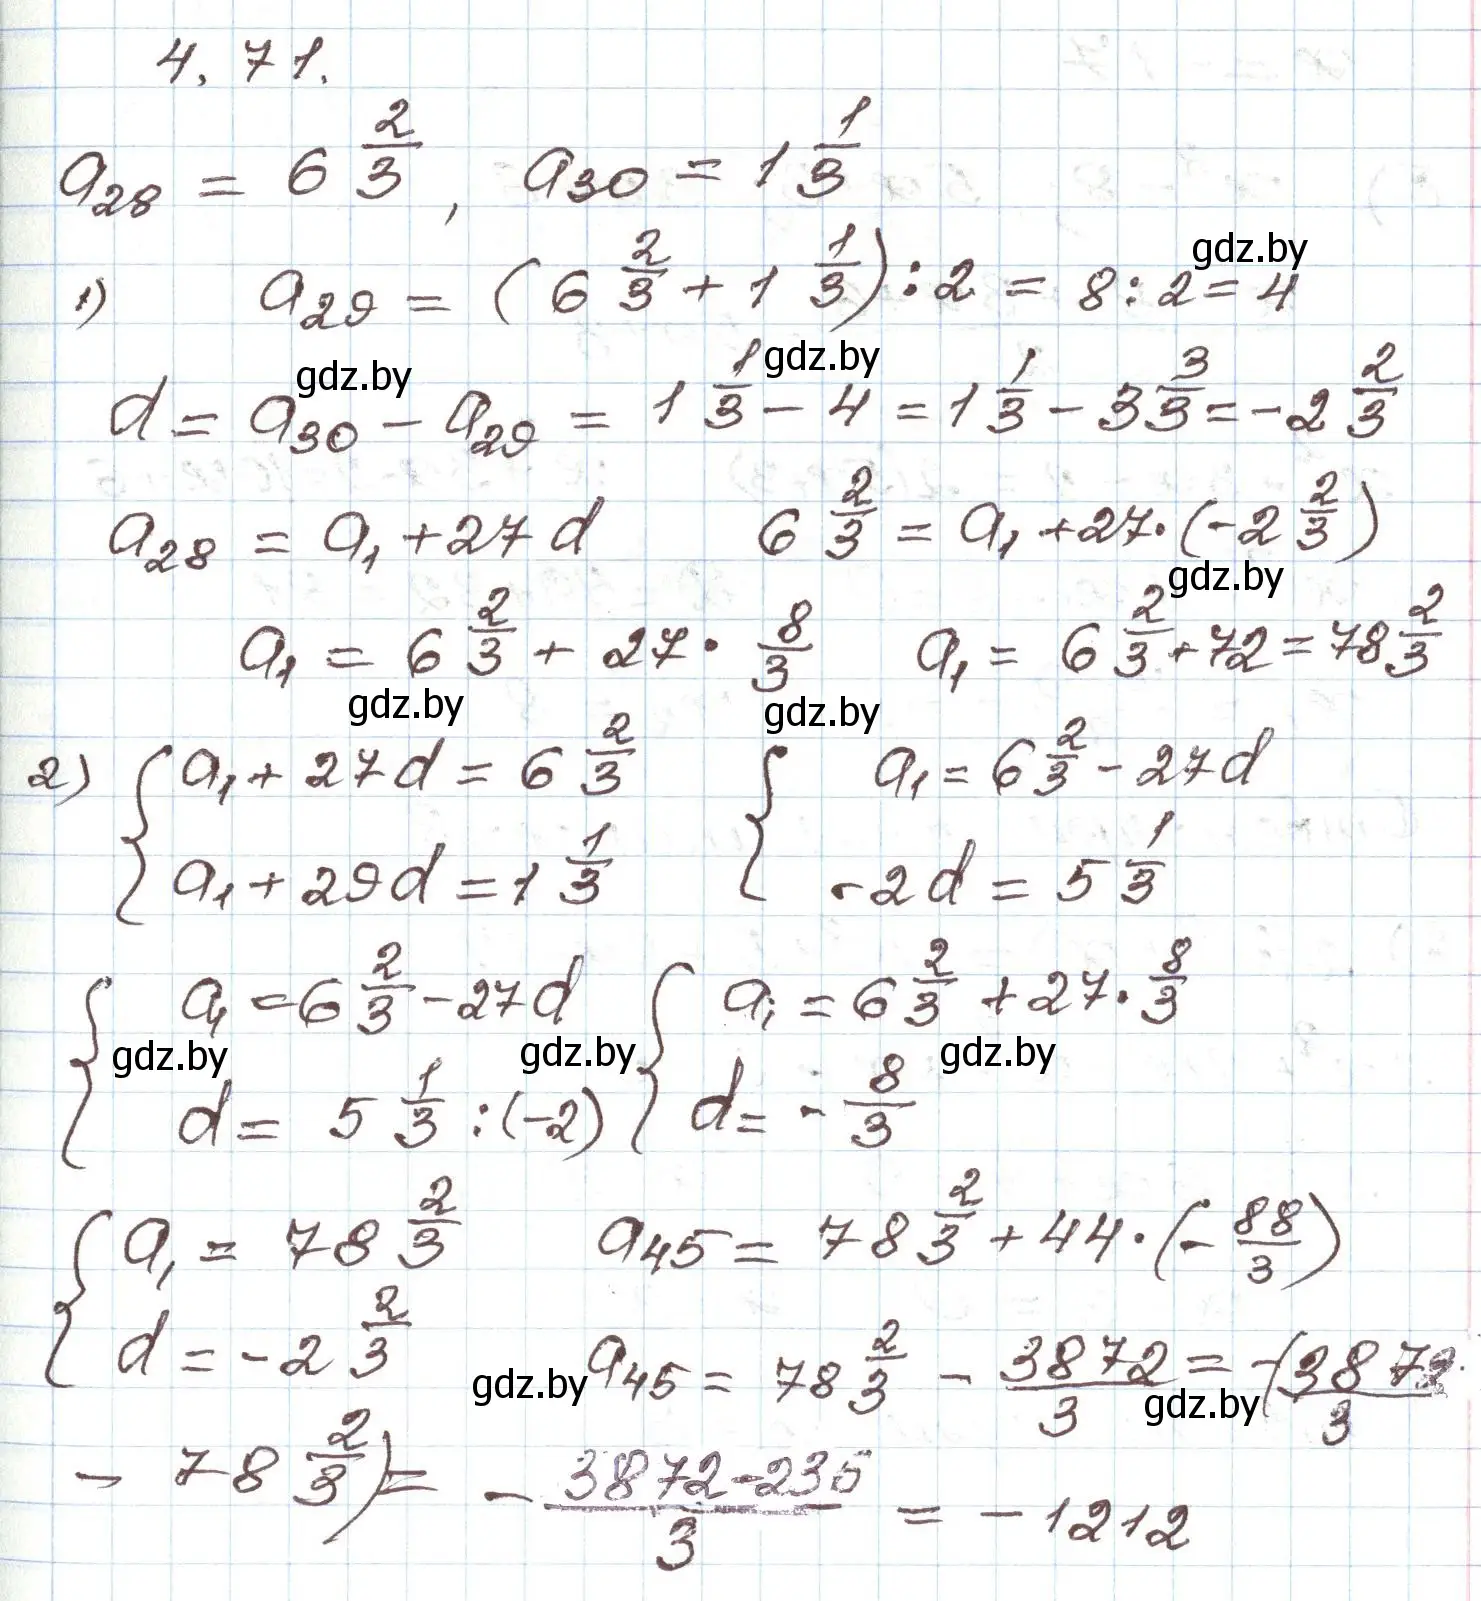 4.71.
a₂₈ = 6 2/3, a₃₀ = 1 1/3
gdz.by
1) a₂₉ = (6 2/3 + 1 1/3) : 2 = 8 : 2 = 4
gdz.by gdz.by
d = a₃₀ - a₂₉ = 1 1/3 - 4 = 1 1/3 - 3 3/3 = -2 2/3
a₂₈ = a₁ + 27d 6 2/3 = a₁ + 27·(-2 2/3)
gdz.by
a₁ = 6 2/3 + 27 · 8/3 a₁ = 6 2/3 + 72 = 78 2/3
gdz.by gdz.by
2) { a₁ + 27d = 6 2/3 { a₁ = 6 2/3 - 27d
a₁ + 29d = 1 1/3 -2d = 5 1/3
{ a₁ = 6 2/3 - 27d { a₁ = 6 2/3 + 27 · 8/3
gdz.by gdz.by gdz.by
d = 5 1/3 : (-2) d = - 8/3
{ a₁ = 78 2/3 a₄₅ = 78 2/3 + 44·(- 88/3)
d = -2 2/3 a₄₅ = 78 2/3 - 3872/3 = -(3872/3
gdz.by gdz.by
- 78 2/3) = - 3872-236/3 = -1212